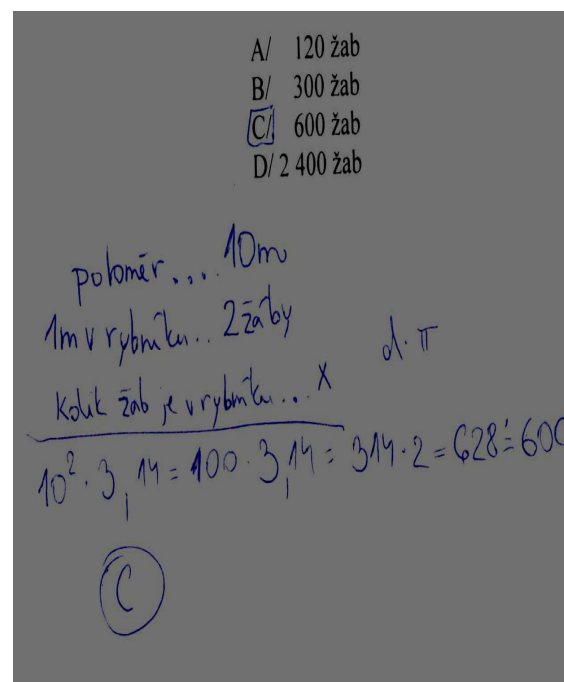 A/ 120 žab
B/ 300 žab
C/ 600 žab
D/ 2 400 žab
poloměr.... 10m
1m v rybníku.. 2 žáby
d·π
Kolik žab je v rybníku... x
10²·3,14 = 100·3,14 = 314·2 = 628 ≐ 600
C